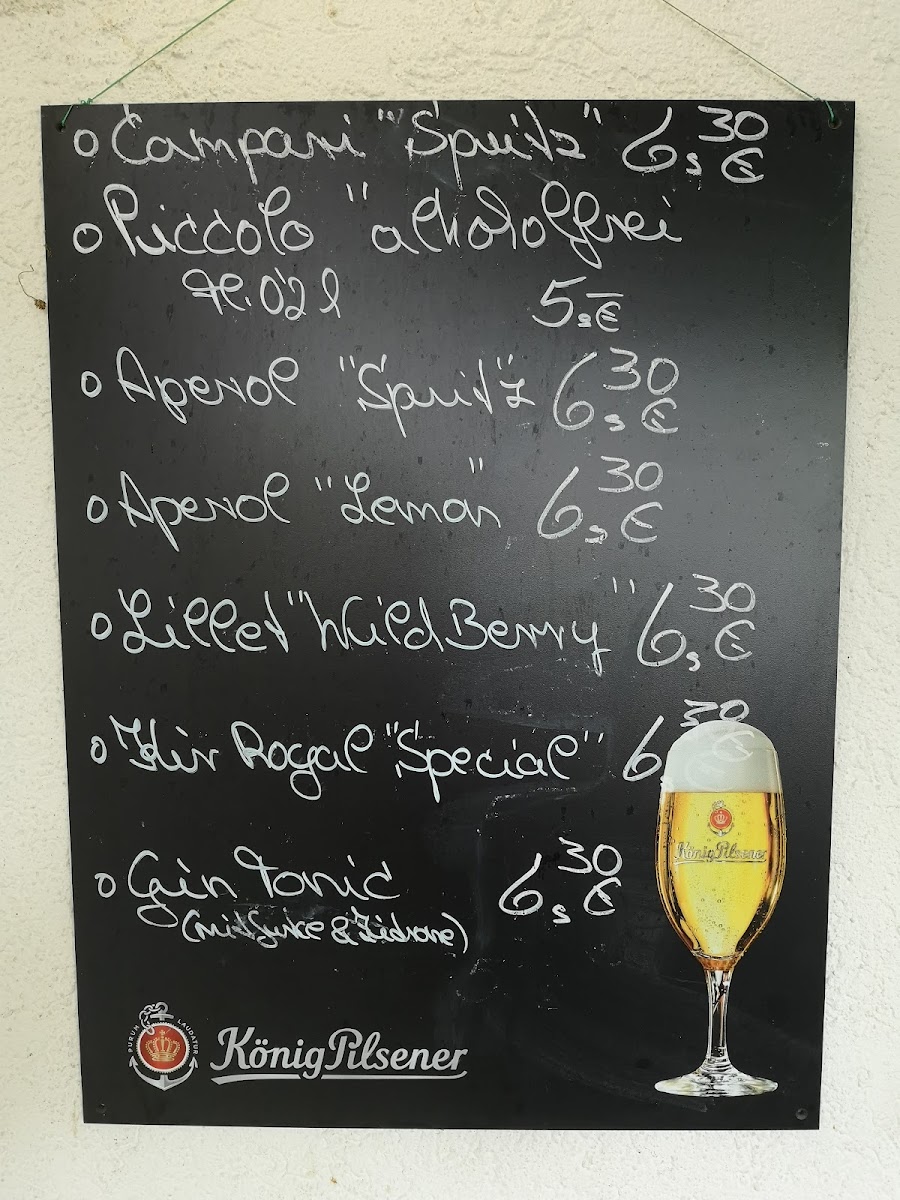 o Campari "Spritz" 6,30 €
o Piccolo "alkoholfrei"
Fl. 0'2 l 5,- €
o Aperol "Spritz 6,30 €
o Aperol "Lemon" 6,30 €
o Lillet "Wild Berry" 6,30 €
o Kir Royal "Special" 6,30 €
o Gin Tonic 6,30 €
(mit Gurke & Zidrone)
König Pilsener
PURUM LAUDATUR
König Pilsener